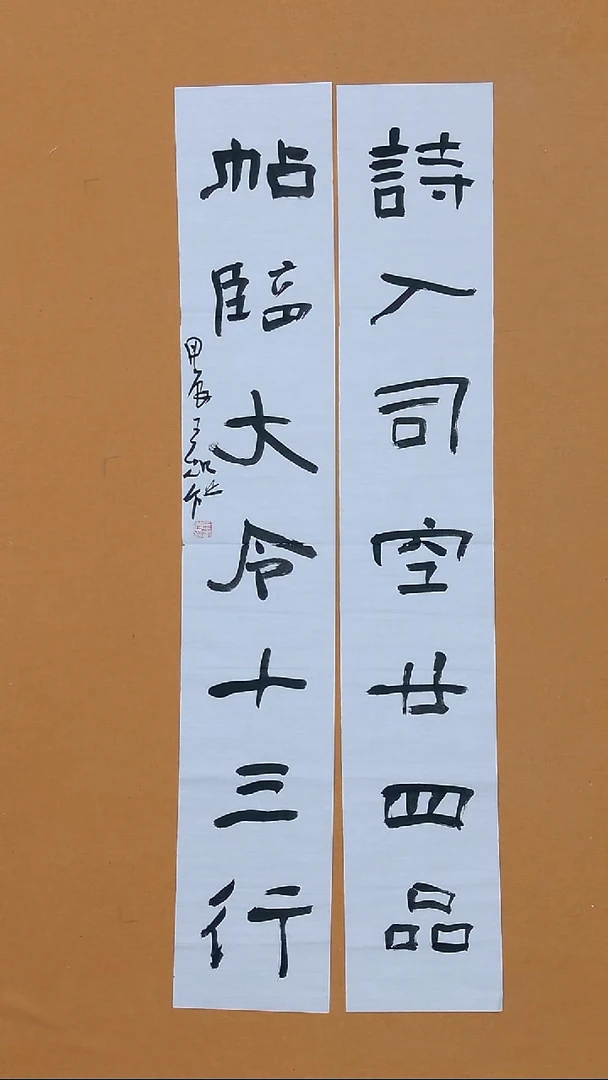 詩入司空廿四品
帖臨大令十三行
甲辰